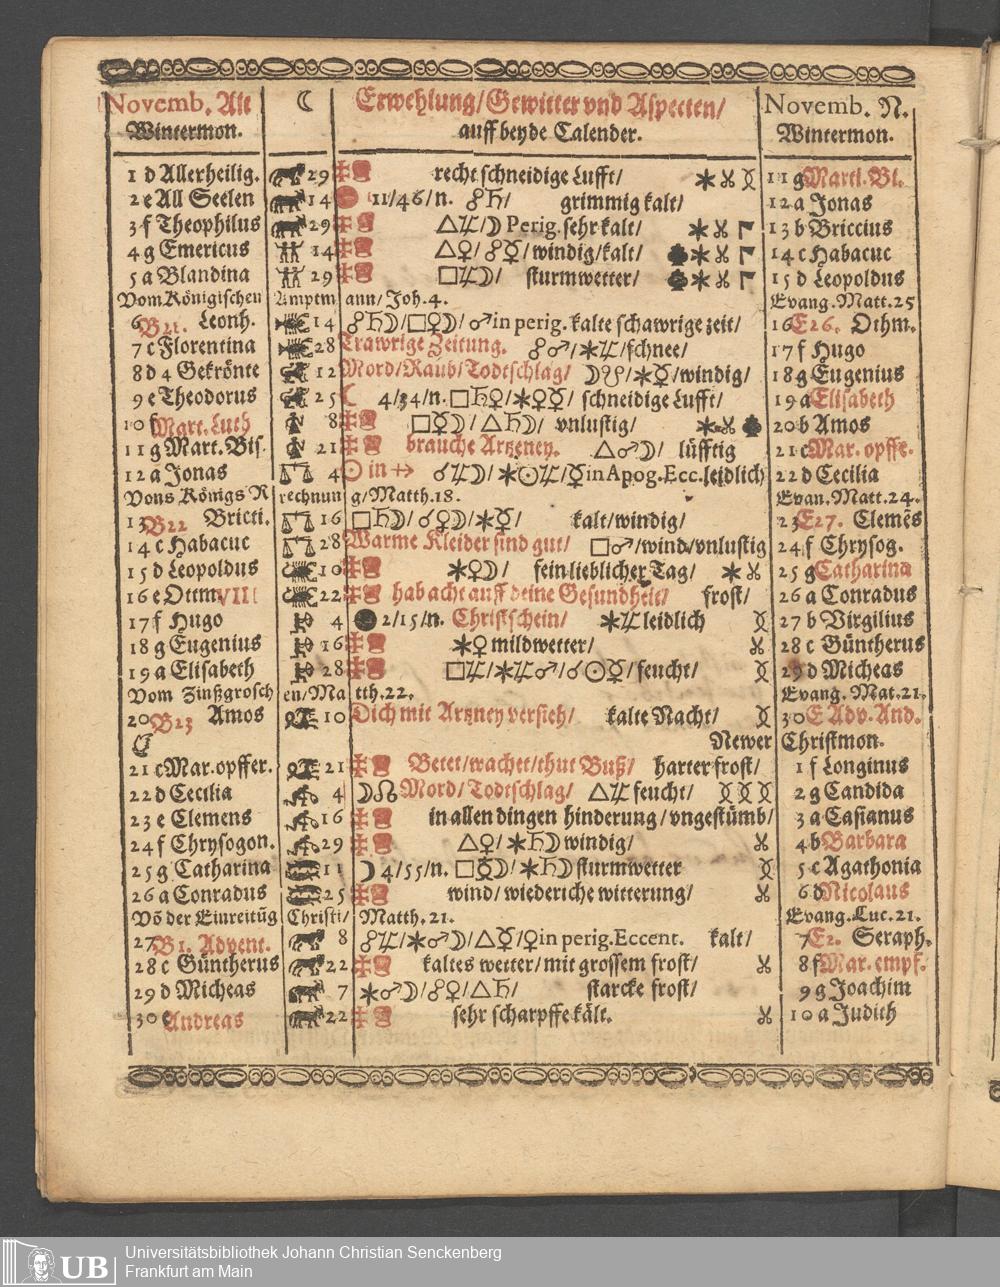 Novemb. Alt ☾ Erwehlung/Gewitter vnd Aspecten/ Novemb. N.
Wintermon. auff beyde Calender. Wintermon.
1 d Allerheilig. 29 recht schneidige Lufft/ 11 g Marti. Bi.
2 e All Seelen 14 11/46/n. ☍♄/ grimmig kalt/ 12 a Jonas
3 f Theophilus 29 △♃/☽ Perig. sehr kalt/ 13 b Briccius
4 g Emericus 14 △♀/☍☿/windig/kalt/ 14 c Habacuc
5 a Blandina 29 □♃☽/ sturmwetter/ 15 d Leopoldus
Vom Königischen Amptmann/Joh. 4. Evang. Matt. 25
6 B21. Leonh. 14 ☍♄☽/□♀☽/♂in perig. kalte schawrige zeit/ 16 E26. Othm.
7 c Florentina 28 Trawrige Zeitung. ☍♂/✶♃/schnee/ 17 f Hugo
8 d 4 Gekrönte 12 Mord/Raub/Todtschlag/ ☽☋/✶☿/windig/ 18 g Eugenius
9 e Theodorus 25 ☾ 4/34/n. □♄♀/✶♀☿/ schneidige Lufft/ 19 a Elisabeth
10 f Mart. Luth 8 □☿☽/△♄☽/ vnlustig/ 20 b Amos
11 g Mart. Bis. 21 brauche Artzeney. △♂☽/ lüfftig 21 c Mar. opffe.
12 a Jonas 4 ☉ in ♐ ☌♃☽/✶☉♃/☿in Apog. Ecc. leidlich 22 d Cecilia
Vons Königs Rrechnung/Matth. 18. Evan. Matt. 24.
13 B22 Bricti. 16 □♄☽/☌♀☽/✶☿/ kalt/windig/ 23 E27. Clemēs
14 c Habacuc 28 Warme Kleider sind gut/ □♂/wind/vnlustig 24 f Chrysog.
15 d Leopoldus 10 ✶♀☽/ fein lieblicher Tag/ 25 g Catharina
16 e Ottm VII 22 hab acht auff deine Gesundheit/ frost/ 26 a Conradus
17 f Hugo 4 2/15/n. Christschein/ ✶♃leidlich 27 b Virgilius
18 g Eugenius 16 ✶♀ mildwetter/ 28 c Güntherus
19 a Elisabeth 28 □♃/✶♃♂/☌☉☿/feucht/ 29 d Micheas
Vom Zinßgroschen/Matth. 22. Evang. Mat. 21.
20 B23 Amos 10 Dich mit Artzney versieh/ kalte Nacht/ 30 E Adv. And.
Newer Christmon.
21 c Mar. opffer. 21 Betet/wachet/thut Buß/ harter frost/ 1 f Longinus
22 d Cecilia 4 ☽☊ Mord/Todtschlag/ △♃ feucht/ 2 g Candida
23 e Clemens 16 in allen dingen hinderung/vngestümb/ 3 a Casianus
24 f Chrysogon. 29 △♀/✶♄☽ windig/ 4 b Barbara
25 g Catharina 11 ☽ 4/55/n. □☿☽/✶♄☽ sturmwetter 5 c Agathonia
26 a Conradus 25 wind/wiederiche witterung/ 6 d Nicolaus
Vō der Einreitūg Christi/Matth. 21. Evang. Luc. 21.
27 B1. Advent. 8 ☍♃/✶♂☽/△☿/♀in perig. Eccent. kalt/ 7 E2. Seraph.
28 c Güntherus 22 kaltes wetter/mit grossem frost/ 8 f Mar. empf.
29 d Micheas 7 ✶♂☽/☍♀/△♄/ starcke frost/ 9 g Joachim
30 e Andreas 22 sehr scharpffe kält. 10 a Judith
UB Universitätsbibliothek Johann Christian Senckenberg
Frankfurt am Main